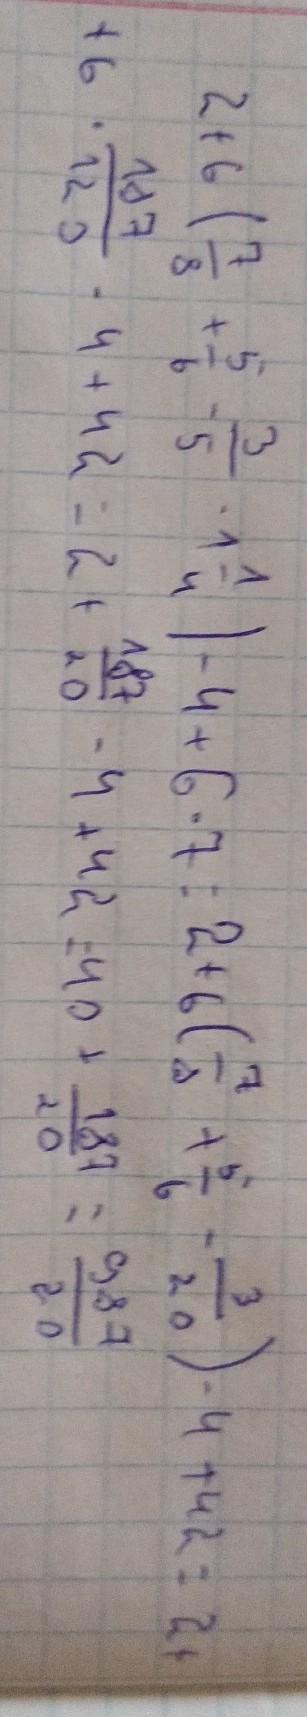 2+6(7/8 + 5/6 - 3/5 · 1 1/4) - 4 + 6 · 7 = 2+6(7/8 + 5/6 - 3/20) - 4 + 42 = 2+
+6 · 187/120 - 4 + 42 = 2 + 187/20 - 4 + 42 = 40 + 187/20 = 987/20